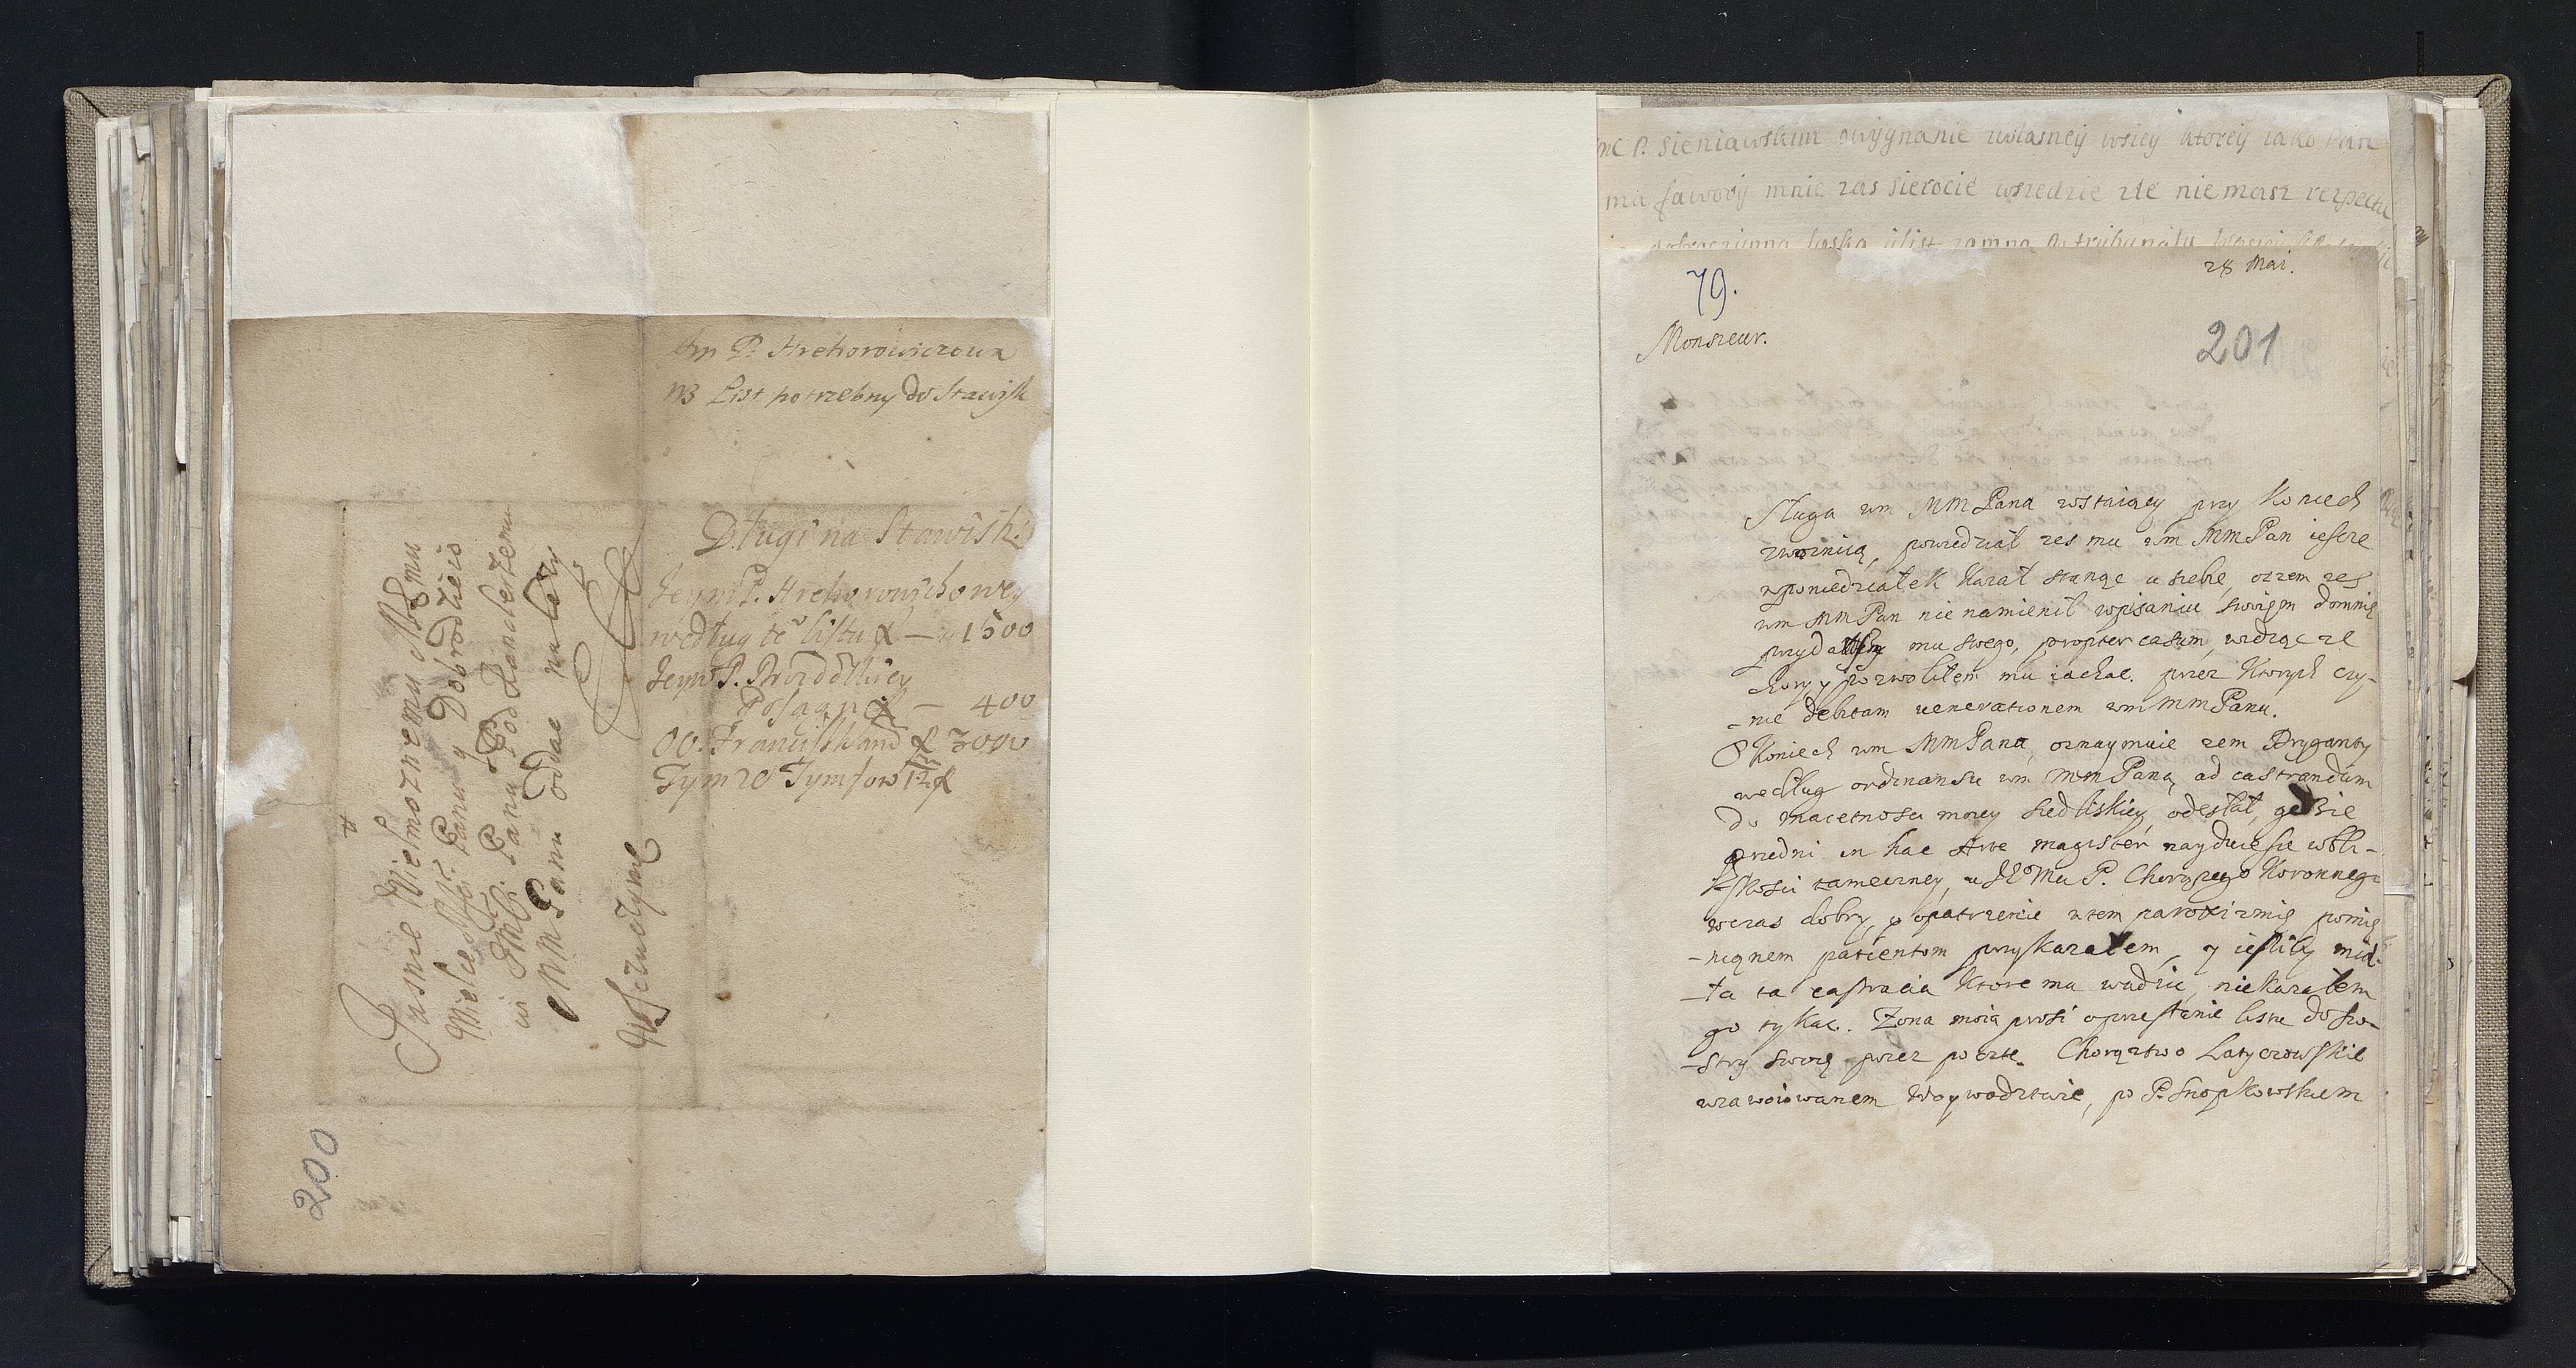 Im P. Hrehorowiczowa
NB List potrzebny do Stawisk
Długi na Stawisk:
Jeym P. Hrehorowichowey
według te listu f — 1500
Jeym P.
Posagu f — 400
OO. Franciszkanō f 3000
Tym 20 Tymfow 12 f
Jasnie Wielmoznemu
Panu y Dobrodzieio
Panu Podkanclerzemu
MM Panu odac nalezy
W Szczuczynie
200
mc P. Sieniawskim owygnanie zwlasney wsiey ktorey iako Pan
ma fawory mnie zas sierocie wszedzie zle nie masz respectu
28 Mai.
79.
201
Monsieur.
Sługa wm MMPana wstaiący przy Koniech
zwoznicą, powiedział zes mu wm MMPan ieszcze
wponiedziałek kazał stanąc u siebie, oczem zes
wm MMPan nie namienił wpisaniu swoięm domnię
mu swego, propter casum, widząc ze
chory, pozwoliłem mu iachac. przez ktorych czy-
-nie debitam venerationem wm MMPanu.
O Koniech wm MMPana, oznaymuie zem Dryganty
według ordinansu wm MMPana, ad castrandum
do maietnosci moiey Siedliskiey, odesłał, gdzie
przedni in hac Arte magister nayduie sie wbli-
-skosci tameczney, u JEoMci P. Chorązego Koronnego
wczas dobry, y opatrzenie wtem paroxizmię pomię
-nionem patientom przykazałem, y iesliby mia-
-ła ta castracia ktore ma wadzic, niekazałem
go tykac. Zona moia prosi oprzesłanie listu do sio-
-stry swoię przez poczte. Chorąztwo Latyczowskie
wzawoiowanem Woywodztwie, po P. Snopkowskiem